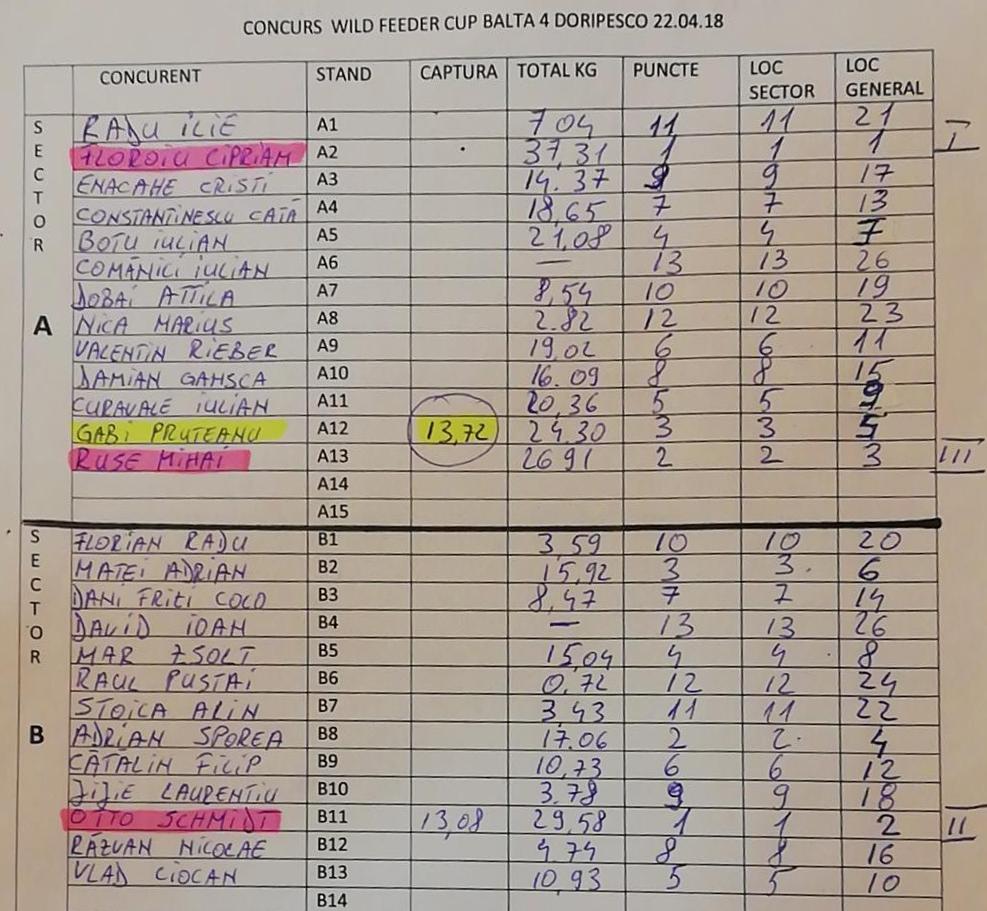 CONCURS WILD FEEDER CUP BALTA 4 DORIPESCO 22.04.18
CONCURENT STAND CAPTURA TOTAL KG PUNCTE LOC SECTOR LOC GENERAL
SECTOR A
RADU ILIE A1 7 04 11 11 21
FLOROIU CIPRIAN A2 37,31 1 1 1 I
ENACAHE CRISTI A3 14.37 9 9 17
CONSTANTINESCU CATĂ A4 18,65 7 7 13
BOTU IULIAN A5 21,08 4 4 7
COMĂNICI IULIAN A6 — 13 13 26
DOBAI ATTILA A7 8,54 10 10 19
NICA MARIUS A8 2.82 12 12 23
VALENTIN RIEBER A9 19,02 6 6 11
DAMIAN GAHSCA A10 16.09 8 8 15
CURAVALE IULIAN A11 20,36 5 5 9
GABI PRUTEANU A12 13,72 24.30 3 3 5
RUSE MIHAI A13 26 91 2 2 3 III
A14
A15
SECTOR B
FLORIAN RADU B1 3,59 10 10 20
MATEI ADRIAN B2 15,92 3 3. 6
DANI FRITI COLO B3 8,47 7 7 14
DAVID IOAN B4 — 13 13 26
MAR ZSOLT B5 15,04 4 4 8
RAUL PUSTAI B6 0,72 12 12 24
STOICA ALIN B7 3,43 11 11 22
ADRIAN SPOREA B8 17.06 2 2. 4
CĂTĂLIN FILIP B9 10,73 6 6 12
JIJIE LAURENTIU B10 3.78 9 9 18
OTTO SCHMIDT B11 13,08 29,58 1 1 2 II
RĂZVAN NICOLAE B12 4,74 8 8 16
VLAD CIOCAN B13 10,93 5 5 10
B14